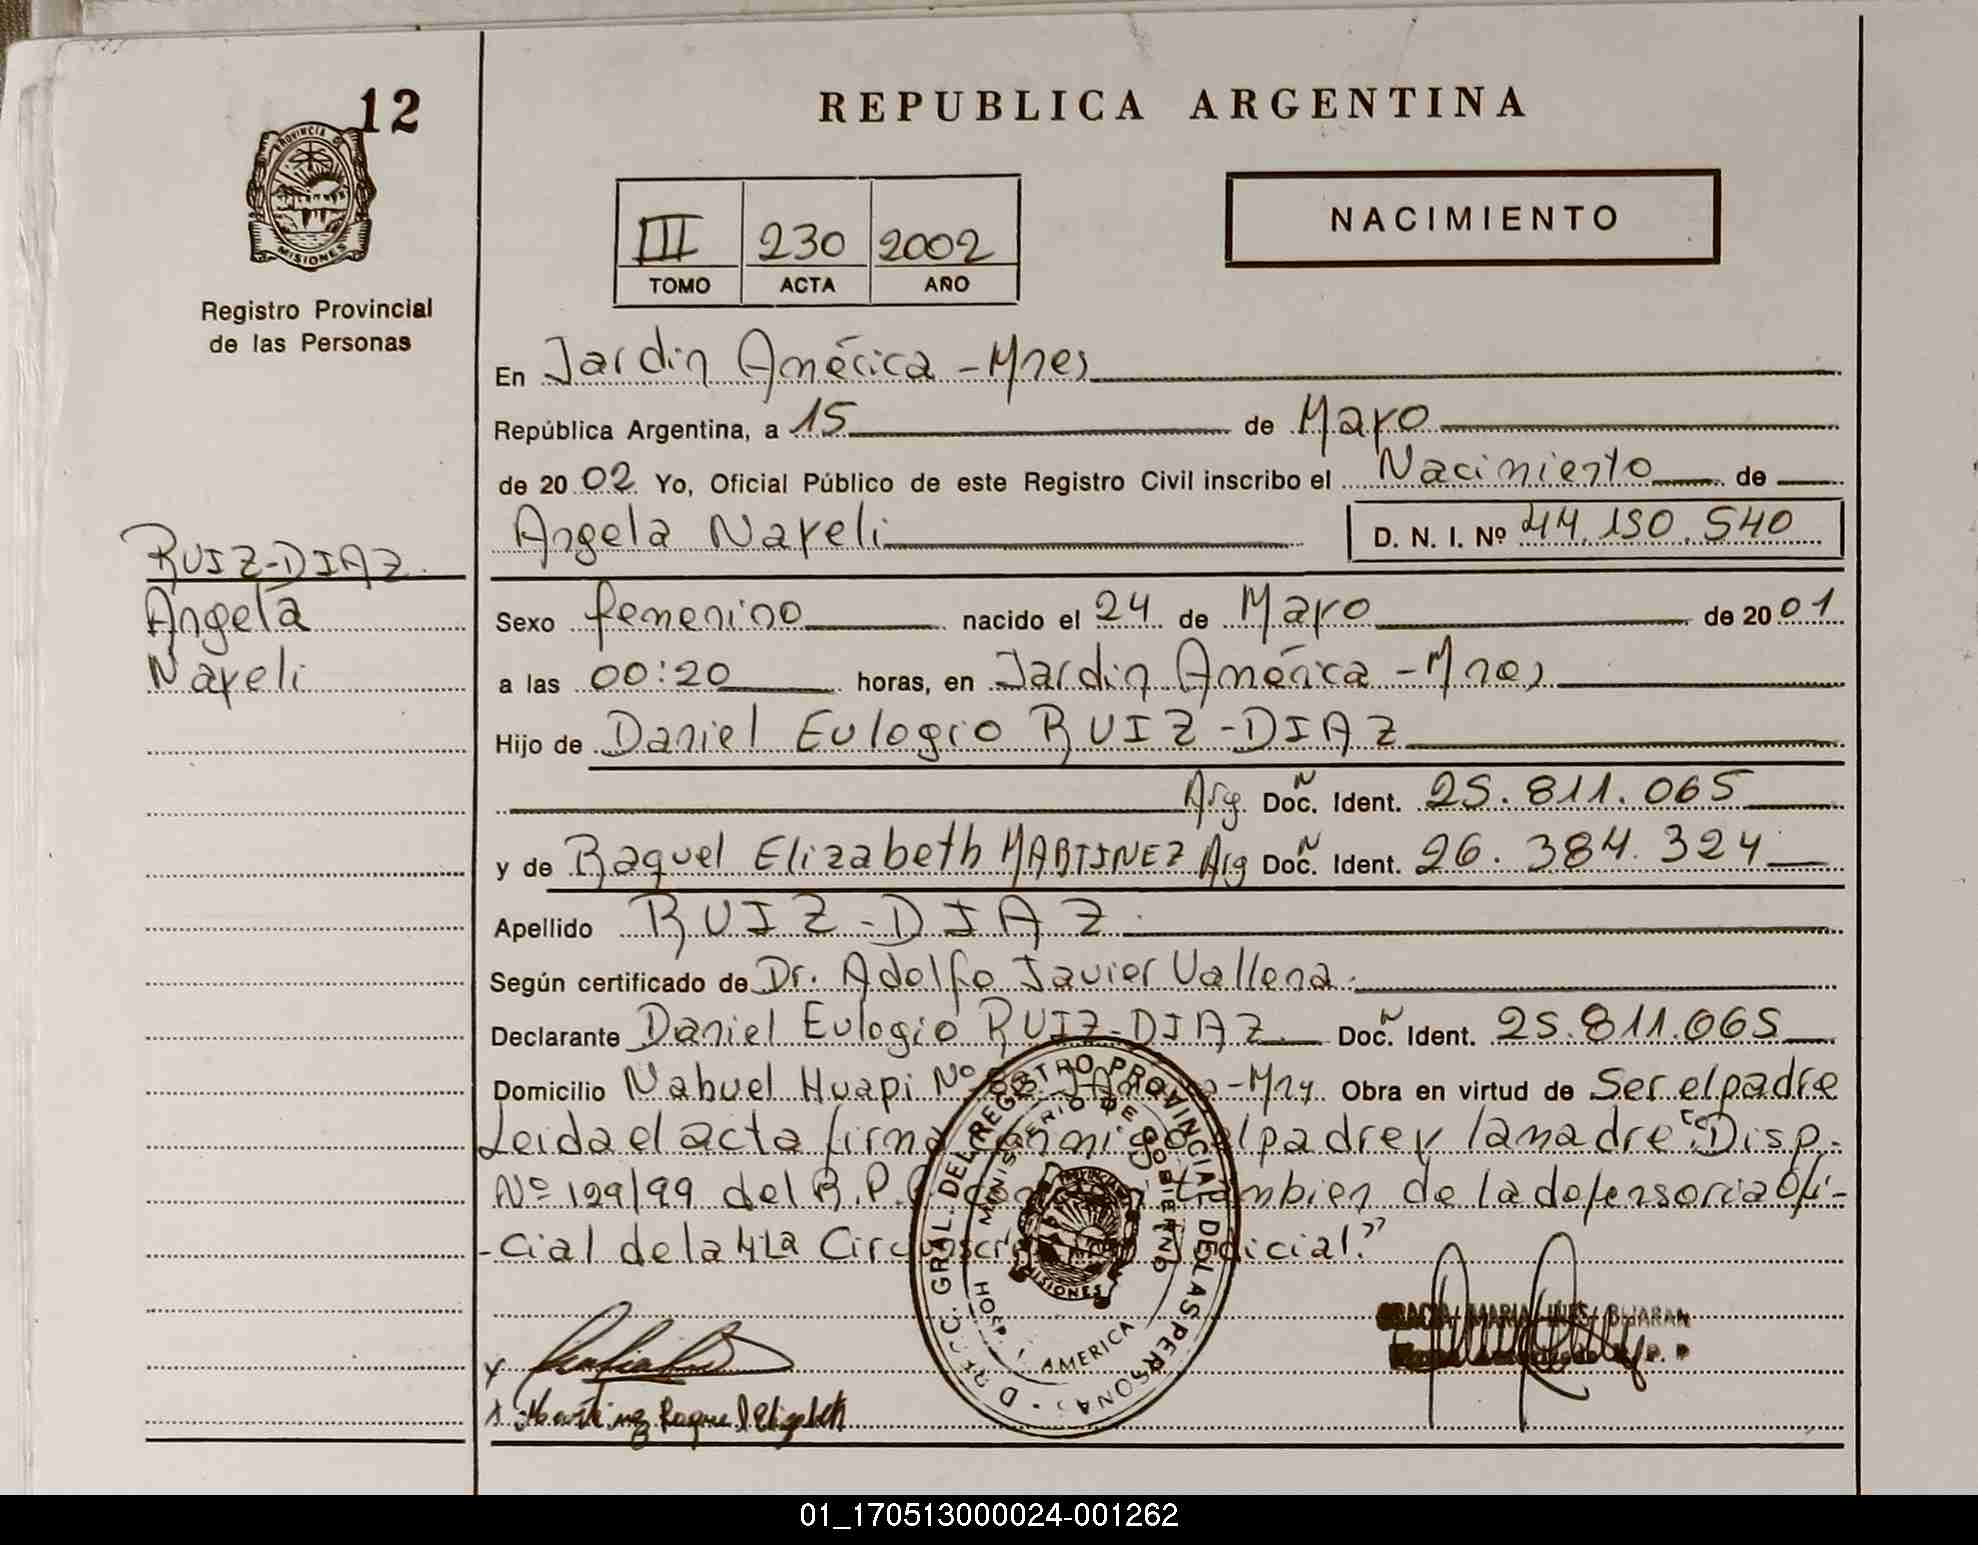 12
PROVINCIA DE
MISIONES
Registro Provincial
de las Personas
REPUBLICA ARGENTINA
III 230 2002
TOMO ACTA AÑO
NACIMIENTO
En Jardin América - Mnes
República Argentina, a 15 de Mayo
de 2002 Yo, Oficial Público de este Registro Civil inscribo el Nacimiento de
Angela Nayeli D. N. I. Nº 44.150.540
RUIZ-DIAZ.
Angela
Nayeli
Sexo femenino nacido el 24 de Mayo de 2001
a las 00:20 horas, en Jardin América - Mnes
Hijo de Daniel Eulogio RUIZ-DIAZ
Arg. Doc. Ident. 25.811.065
y de Raquel Elizabeth MARTINEZ Arg Doc. Ident. 26.384.324
Apellido RUIZ-DIAZ.
Según certificado de Dr. Adolfo Javier Vallena.
Declarante Daniel Eulogio RUIZ-DIAZ Doc. Ident. 25.811.065
Domicilio Nahuel Huapi Nº Obra en virtud de Ser el padre
Leida el acta firma conmigo el padre y la madre "Disp.
Nº 129/99 del R.P. tambien de la defensoria Ofi-
-cial de la 4ta Circunscri Judicial."
DIREC. GRAL. DEL REGISTRO PROVINCIAL DE LAS PERSONAS
MINISTERIO DE GOBIERNO
PROVINCIA
MISIONES
HOSP. AMERICA
MARIA INES BEJARAN
Martinez Raquel Elizabeth
01_170513000024-001262